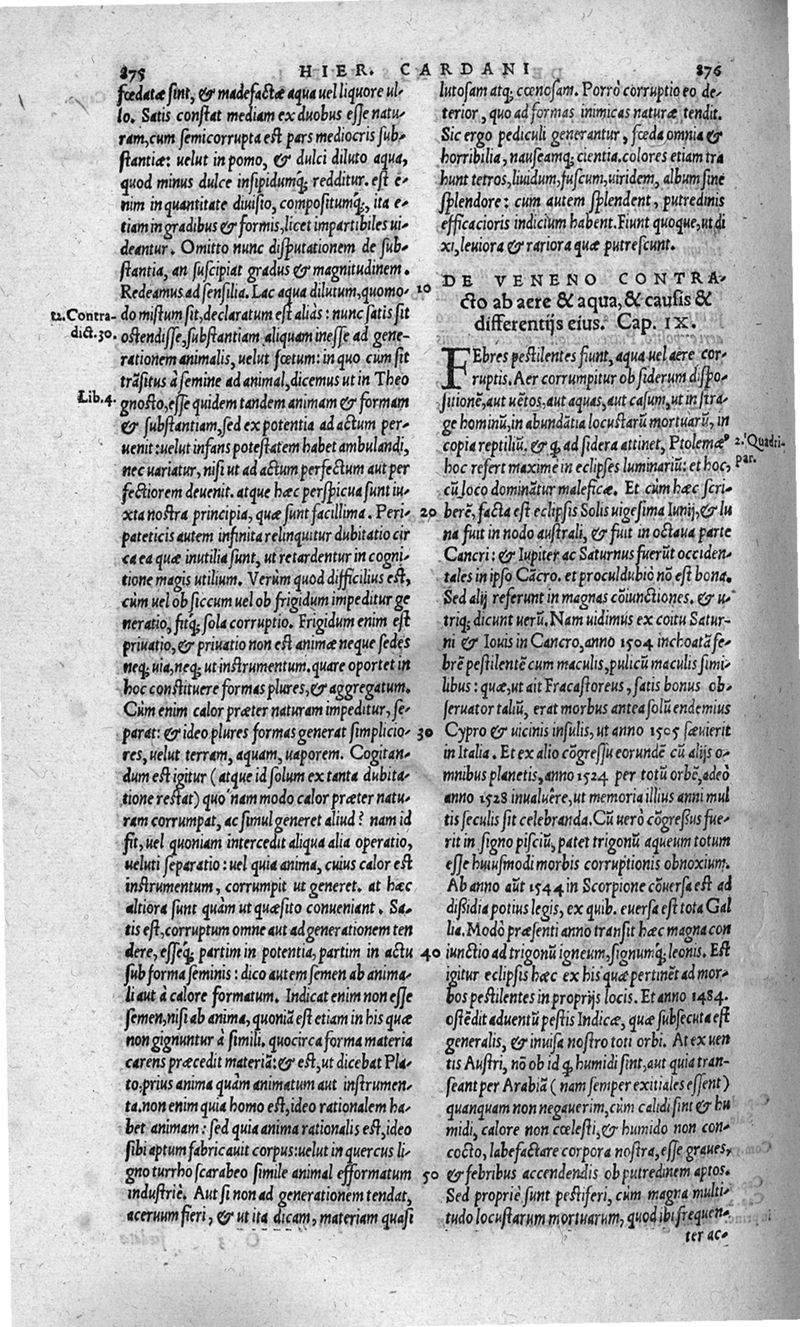 875 HIER. CARDANI 876
fœdatæ sint, & madefactæ aqua uel liquore ul-
lo. Satis constat mediam ex duobus esse natu-
ram, cum semicorrupta est pars mediocris sub-
stantiæ: uelut in pomo, & dulci diluto aqua,
quod minus dulce insipidumq́; redditur. est e-
nim in quantitate diuisio, compositumq́;, ita e-
tiam in gradibus & formis, licet impartibiles ui-
deantur. Omitto nunc disputationem de sub-
stantia, an suscipiat gradus & magnitudinem.
Redeamus ad sensilia. Lac aqua dilutum, quomo- 10
do mistum sit, declaratum est aliàs: nunc satis sit
12. Contra-
dict. 30.
ostendisse, substantiam aliquam inesse ad gene-
rationem animalis, uelut fœtum: in quo cum sit
trãsitus à semine ad animal, dicemus ut in Theo
Lib. 4.
gnosto, esse quidem tandem animam & formam
& substantiam, sed ex potentia ad actum per-
uenit: uelut infans potestatem habet ambulandi,
nec uariatur, nisi ut ad actum perfectum aut per
fectiorem deuenit. atque hæc perspicua sunt iu-
xta nostra principia, quæ sunt facillima. Peri- 20
pateticis autem infinita relinquitur dubitatio cir
ca ea quæ inutilia sunt, ut retardentur in cogni-
tione magis utilium. Verùm quod difficilius est,
cùm uel ob siccum uel ob frigidum impeditur ge
neratio, fitq́; sola corruptio. Frigidum enim est
priuatio, & priuatio non est animæ neque sedes
neq; uia, neq; ut instrumentum. quare oportet in
hoc constituere formas plures, & aggregatum.
Cùm enim calor præter naturam impeditur, se-
parat: & ideo plures formas generat simplicio- 30
res, uelut terram, aquam, uaporem. Cogitan-
dum est igitur (atque id solum ex tanta dubita-
tione restat) quo nam modo calor præter natu-
ram corrumpat, ac simul generet aliud? nam id
fit, uel quoniam intercedit aliqua alia operatio,
ueluti separatio: uel quia anima, cuius calor est
instrumentum, corrumpit ut generet. at hæc
altiora sunt quàm ut quæsito conueniant. Sa-
tis est, corruptum omne aut ad generationem ten
dere, esseq́; partim in potentia, partim in actu 40
sub forma seminis: dico autem semen ab anima-
li aut à calore formatum. Indicat enim non esse
semen, nisi ab anima, quoniã est etiam in his quæ
non gignuntur à simili. quocirca forma materia
carens præcedit materiã: & est, ut dicebat Pla-
to, prius anima quàm animatum aut instrumen-
ta. non enim quia homo est, ideo rationalem ha-
bet animam: sed quia anima rationalis est, ideo
sibi aptum fabricauit corpus: uelut in quercus li-
gno turrho scarabeo simile animal efformatum 50
industriè. Aut si non ad generationem tendat,
aceruum fieri, & ut ita dicam, materiam quasi
lutosam atq; cœnosam. Porrò corruptio eo de-
terior, quo ad formas inimicas naturæ tendit.
Sic ergo pediculi generantur, fœda omnia &
horribilia, nauseamq́; cientia. colores etiam tra
hunt tetros, liuidum, fuscum, uiridem, album sine
splendore: cum autem splendent, putredinis
efficacioris indicium habent. Fiunt quoque, ut di
xi, leuiora & rariora quæ putrescunt.
DE VENENO CONTRA-
cto ab aere & aqua, & causis &
differentijs eius. Cap. IX.
FEbres pestilentes fiunt, aqua uel aere cor-
ruptis. Aer corrumpitur ob siderum dispo-
sitionẽ, aut uẽtos, aut aquas, aut casum, ut in stra
ge hominũ, in abundãtia locustarũ mortuarũ, in
copia reptiliũ. & q, ad sidera attinet, Ptolemæ⁹
2. Quadri-
par.
hoc refert maximè in eclipses luminariũ: et hoc,
cũ loco dominãtur maleficæ. Et cùm hæc scri-
berẽ, facta est eclipsis Solis uigesima Iunij, & lu
na fuit in nodo australi, & fuit in octaua parte
Cancri: & Iupiter ac Saturnus fuerũt occiden-
tales in ipso Cãcro. et proculdubiò nõ est bona.
Sed alij referunt in magnas cõiunctiones. & u-
triq; dicunt uerũ. Nam uidimus ex coitu Satur-
ni & Iouis in Cancro, anno 1504 inchoatã fe-
brẽ pestilentẽ cum maculis, pulicũ maculis simi-
libus: quæ, ut ait Fracastoreus, satis bonus ob-
seruator taliũ, erat morbus antea solũ endemius
Cypro & uicinis insulis, ut anno 1505 sæuierit
in Italia. Et ex alio cõgressu eorundẽ cũ alijs o-
mnibus planetis, anno 1524 per totũ orbẽ, adeò
anno 1528 inualuêre, ut memoria illius anni mul
tis seculis sit celebranda. Cũ uerò cõgreßus fue-
rit in signo pisciũ, patet trigonũ aqueum totum
esse huiusmodi morbis corruptionis obnoxium.
Ab anno aũt 1544 in Scorpione cõuersa est ad
dißidia potius legis, ex quib. euersa est tota Gal
lia. Modò præsenti anno transit hæc magna con
iunctio ad trigonũ igneum, signumq́; leonis. Est
igitur eclipsis hæc ex his quæ pertinẽt ad mor-
bos pestilentes in proprijs locis. Et anno 1484.
ostẽdit aduentũ pestis Indicæ, quæ subsecuta est
generalis, & inuisa nostro toti orbi. At ex uen
tis Austri, nõ ob id q, humidi sint, aut quia tran-
seant per Arabiã (nam semper exitiales essent)
quanquam non negauerim, cùm calidi sint & hu
midi, calore non cœlesti, & humido non con-
cocto, labefactare corpora nostra, esse graues,
& febribus accendendis ob putredinem aptos.
Sed propriè sunt pestiferi, cùm magna multi-
tudo locustarum mortuarum, quod ibi frequen-
ter ac-